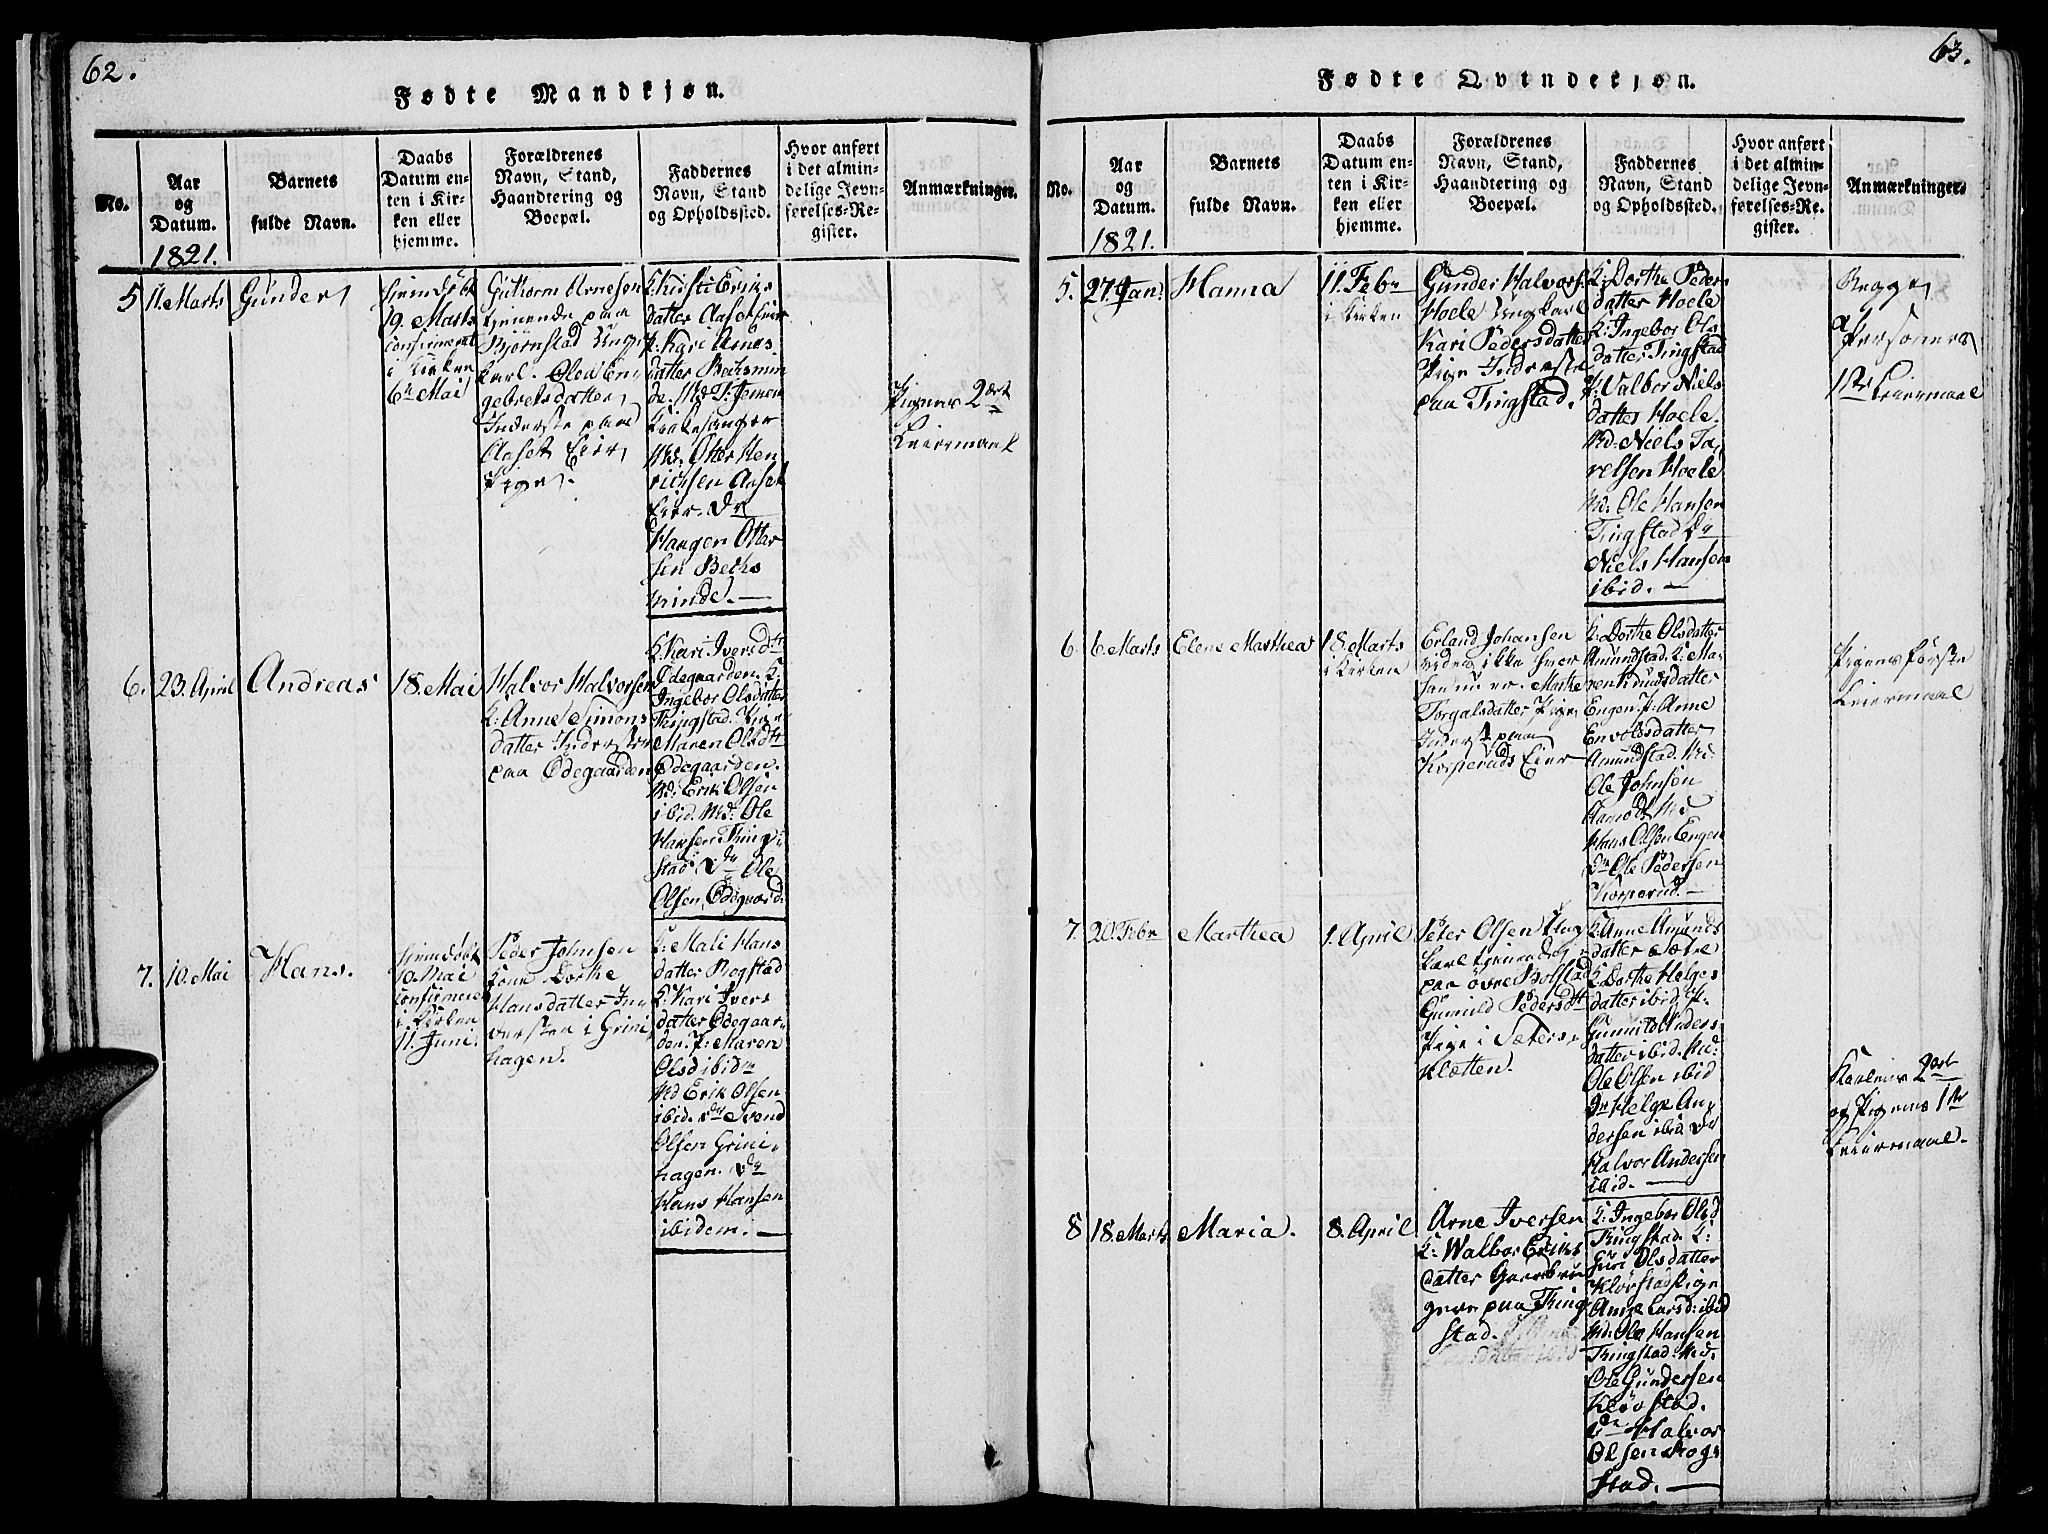 62.
Fødte Mandkjøn.
No.
Aar
og
Datum.
1821.
Barnets
fulde Navn.
Daabs
Datum en-
ten i Kir-
ken eller
hjemme.
Forældrenes
Navn, Stand,
Haandtering og
Boepæl.
Faddernes
Navn, Stand
og Opholdssted.
Hvor anført
i det almin-
delige Jevn-
førelses-Re-
gister.
Anmærkninger.
5
11. Marts
Gunder
hjemdøbt
19. Marts
confirmeret
i Kirken
6te Mai
Guthorm Arnesen
tjenende paa
Bjørnstad Ung-
karl. Olea En-
gebretsdatter
Inderste paa
Aaset Eier
Pige.
K: Kirsti Eriks
datter Aaset Eier
P: Kari Arnes
datter Bechsmin
de. Md: T: Jemen
Kirkesanger
Md: Otter Hen
richsen Aaset
Eier. Dr
Haagen Otter
sen Bechs
minde. —
Pigens 2det
Leiermaal
6.
23. April
Andreas
18. Mai
Halvor Halvorsen
K: Anne Simons
datter Inderster
paa Ødegaarden
K: Kari Iversdtr
Ødegaarden. K:
Ingebor Olsdatter
Tingstad. Pige
Maren Olsdtr
Ødegaarden.
Md: Erik Olsen
ibid. Md: Ole
Hansen Ting-
stad. Dr Ole
Olsen Ødegaard.
7.
10. Mai
Hans.
hjemdøbt
10. Mai
confirmeret
i Kirken
11. Juni
Peder Johnsen
Kone Dorthe
Hansdatter In-
dersten i Grini
hagen.
K: Mali Hans
datter Rogstad
K: Kari Ivers
datter Ødegaar-
den. P: Maren
Olsd ibid
Md Erik Olsen
ibid. Dr Svend
Olsen Grini-
hagen. Dr
Hans Hansen
ibidem. —
63.
Fødte Qvindekjøn.
No.
Aar
og
Datum.
1821.
Barnets
fulde Navn.
Daabs
Datum en-
ten i Kir-
ken eller
hjemme.
Forældrenes
Navn, Stand,
Haandtering og
Boepæl.
Faddernes
Navn, Stand
og Opholdssted.
Hvor anført
i det almin-
delige Jevn-
førelses-Re-
gister.
Anmærkninger.
5.
27. Jan.
Hanna
11. Febr
i Kirken
Gunder Halvors.
Hoele Ungkarl
Kari Pedersdatter
Pige Inderste
paa Tingstad.
K: Dorthe Peders
datter Hoele
K: Ingebor Ols
datter Tingstad
P: Valbor Niels
datter Hoele
Md: Niels Ta-
relsen Hoele
Md: Ole Hansen
Tingstad Dr
Niels Hansen
ibid. —
Begge
Personers
1ste Leiermaal
6.
6. Marts
Elene Marthea
18. Marts
i Kirken
Erland Johansen
vides ikke hvor
han nu er. Marthe
Torgalsdatter Pige
Inderst paa
Korperuds Eier
K: Dorthe Olsdatter
Amundstad. K: Ma-
ren Knudsdatter
Engen P: Anne
Envoldsdatter
Amundstad. Md:
Ole Johnsen
Aamodt Md
Hans Olsen Engen
Dr Ole Pedersen
Korperud. —
Pigens første
Leiermaal
7.
20. Febr
Marthea
1. April
Peter Olsen Ung
karl tjenende
paa øvre Bolstad
Gunild Pedersdtr
Pige i Sæters-
klætten.
K: Anne Amunds
datter Sætre
K: Dorthe Helges
datter ibid. P:
Gunnild Anders
datter ibid. Md:
Ole Olsen ibid
Dr Helge An-
dersen ibid Dr
Halvor Andersen
ibid. —
Karlens 2det
og Pigens 1ste
Leiermaal.
8
18. Marts
Maria.
8. April
Arne Iversen
K: Walbor Eriks
datter Gaardbru
gere paa Ting
stad.
K: Ingebor Olsd
Tingstad. K:
Guri Olsdatter
Kløvstad Pige
Anne Larsd: ibid
Md: Ole Hansen
Tingstad. Md.
Ole Gundersen
Kløvstad.
Dr Halvor
Olsen Rogs
stad. —